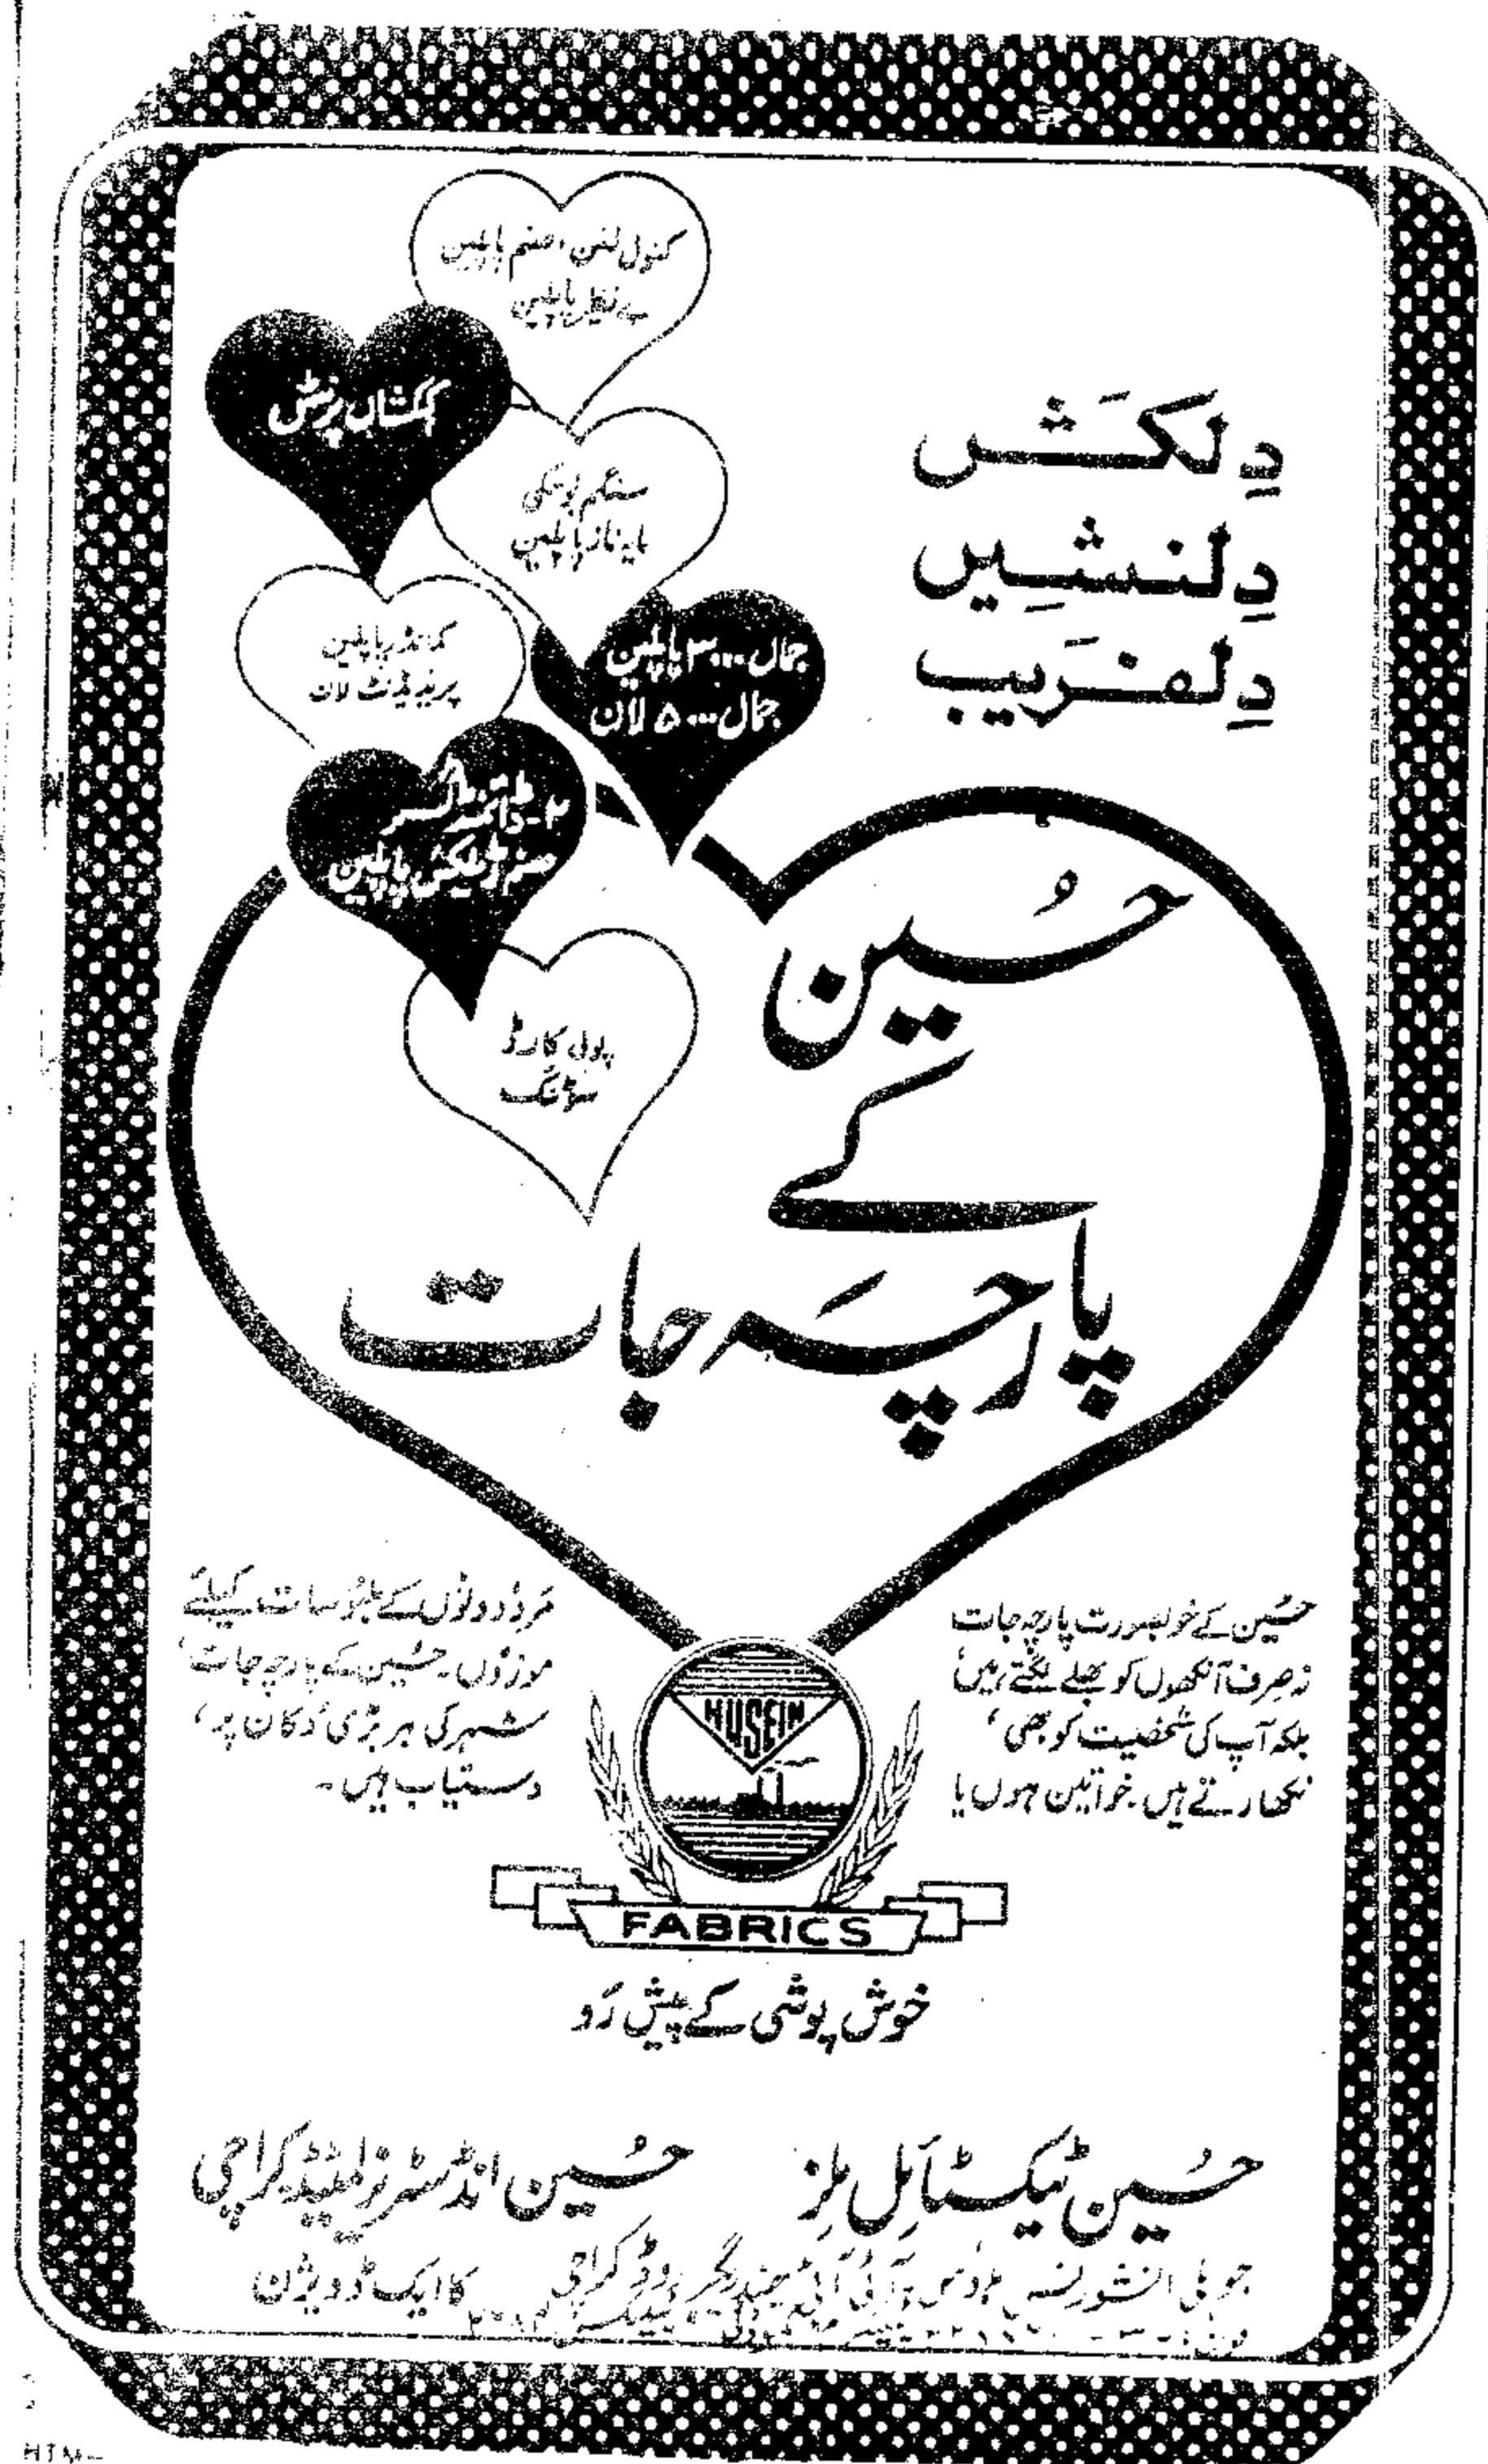 دِلکَش
دِلنشِیں
دِلفرَیب
کنول لنن، صنم پاپلین
بے نظیر پاپلین
کہکشاں پرنٹس
سنگم بوسکی
مایہ ناز پاپلین
جمال ۳۰۰۰ پاپلین
جمال ۵۰۰۰ لان
کمانڈر پاپلین
پریذیڈنٹ لان
صنم پاپلین
پولی کارڈ
سوٹنگ
حُسین
کے
پارچَہ جات
حُسین کے خوبصورت پارچہ جات
نہ صِرف آنکھوں کو بھلے لگتے ہیں،
بلکہ آپ کی شخصیت کو بھی،
نکھارتے ہیں. خواتین ہوں یا
مَرد، دونوں کے ملبُوسات کیلئے
موزوُں. حُسین کے پارچہ جات،
شہر کی ہر بڑی دُکان پر،
دستیاب ہیں۔
HUSEIN
FABRICS
خوش پوشی کے پیش رَو
حُسین ٹیکسٹائل مِلز
حُسین انڈسٹریز لمیٹڈ کراچی
کا ایک ڈویژن
جوبلی انشورنس ہاؤس، آئی آئی چندریگر روڈ کراچی
HTM-